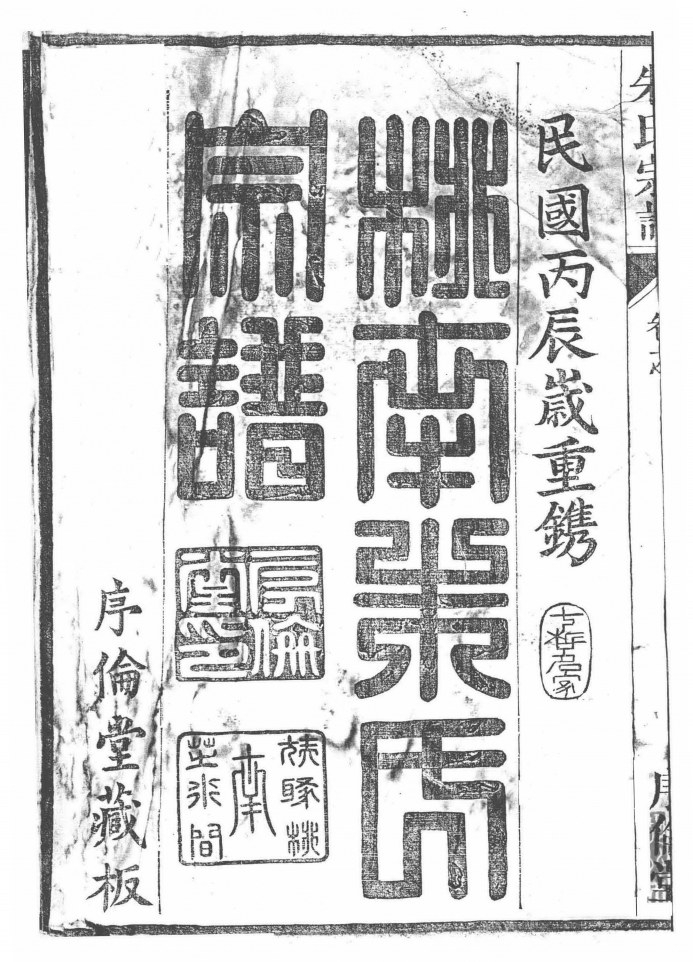 朱氏宗譜
序倫堂
民國丙辰歲重鐫
桃南朱氏
宗譜
序倫堂印
序倫堂藏板